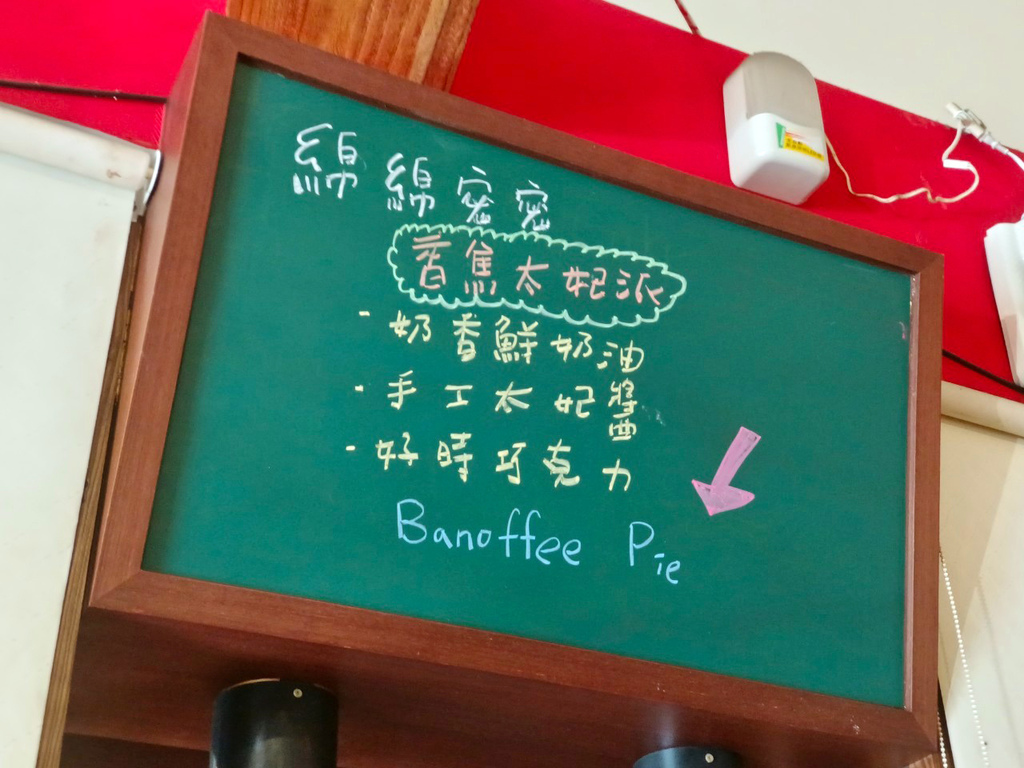 綿綿密密
香蕉太妃派
- 奶香鮮奶油
- 手工太妃醬
- 好時巧克力
Banoffee Pie